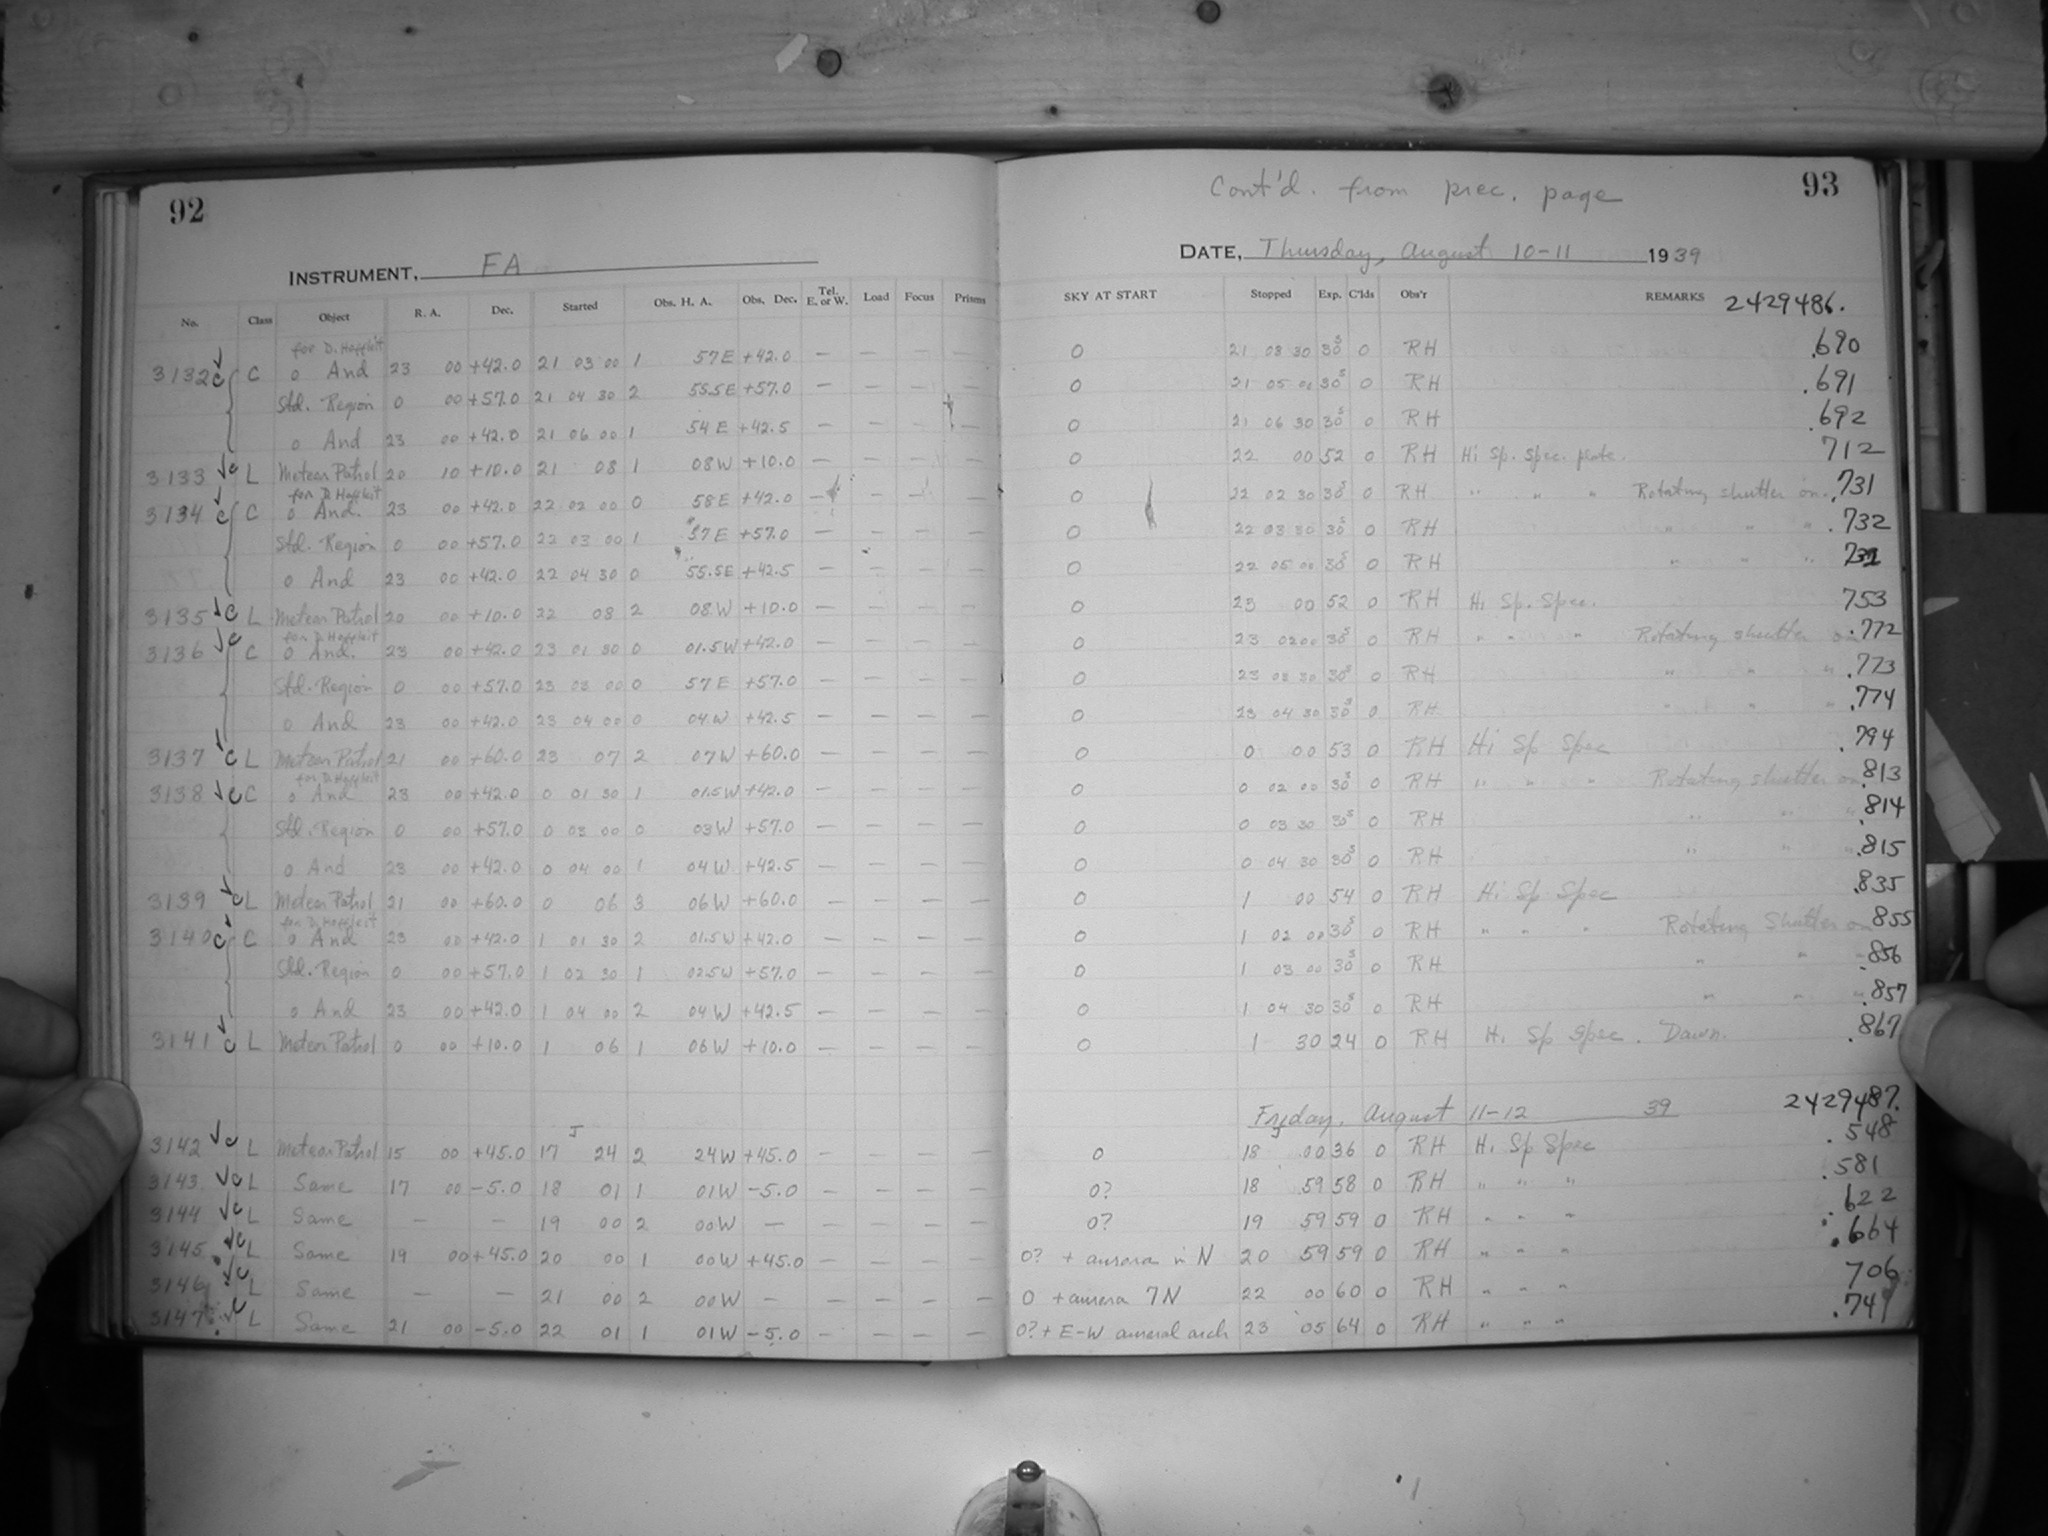 92
INSTRUMENT, FA
No. Class Object R. A. Dec. Started Obs. H. A. Obs. Dec. Tel. E. or W. Load Focus Prisms
for D. Hoffleit
3132 C C o And 23 00 +42.0 21 03 00 1 57 E +42.0 — — — —
Std. Region 0 00 +57.0 21 04 30 2 55.5E +57.0 — — — —
o And 23 00 +42.0 21 06 00 1 54 E +42.5 — — — —
3133 C L Meteor Patrol 20 10 +10.0 21 08 1 08W +10.0 — — — —
for D. Hoffleit
3134 C C o And. 23 00 +42.0 22 02 00 0 58 E +42.0 — — — —
Std. Region 0 00 +57.0 22 03 00 1 57 E +57.0 — — — —
o And 23 00 +42.0 22 04 30 0 55.5E +42.5 — — — —
3135 C L Meteor Patrol 20 00 +10.0 22 08 2 08W +10.0 — — — —
for D. Hoffleit
3136 C C o And. 23 00 +42.0 23 01 30 0 01.5W +42.0 — — — —
Std. Region 0 00 +57.0 23 03 00 0 57 E +57.0 — — — —
o And 23 00 +42.0 23 04 00 0 04 W +42.5 — — — —
3137 C L Meteor Patrol 21 00 +60.0 23 07 2 07W +60.0 — — — —
for D. Hoffleit
3138 C C o And 23 00 +42.0 0 01 30 1 01.5W +42.0 — — — —
Std. Region 0 00 +57.0 0 03 00 0 03W +57.0 — — — —
o And 23 00 +42.0 0 04 00 1 04W +42.5 — — — —
3139 C L Meteor Patrol 21 00 +60.0 0 06 3 06W +60.0 — — — —
for D. Hoffleit
3140 C C o And 23 00 +42.0 1 01 30 2 01.5W +42.0 — — — —
Std. Region 0 00 +57.0 1 02 30 1 02.5W +57.0 — — — —
o And 23 00 +42.0 1 04 00 2 04W +42.5 — — — —
3141 C L Meteor Patrol 0 00 +10.0 1 06 1 06W +10.0 — — — —
3142 C L Meteor Patrol 15 00 +45.0 17 24 2 24W +45.0 — — — —
3143 C L Same 17 00 -5.0 18 01 1 01W -5.0 — — — —
3144 C L Same — — 19 00 2 00W — — — — —
3145 C L Same 19 00 +45.0 20 00 1 00W +45.0 — — — —
3146 C L Same — — 21 00 2 00W — — — — —
3147 C L Same 21 00 -5.0 22 01 1 01W -5.0 — — — —
Cont'd. from prec. page 93
DATE, Thursday, August 10-11 1939
SKY AT START Stopped Exp. C'lds Obs'r REMARKS 2429486.
0 21 03 30 30s 0 RH .690
0 21 05 00 30s 0 RH .691
0 21 06 30 30s 0 RH .692
0 22 00 52 0 RH Hi Sp. Spec. plate. 712
0 22 02 30 30s 0 RH " " " Rotating shutter on. .731
0 22 03 30 30s 0 RH " " " .732
0 22 05 00 30s 0 RH " " "
0 23 00 52 0 RH Hi Sp. Spec. 753
0 23 02 00 30s 0 RH " " " Rotating shutter on .772
0 23 03 30 30s 0 RH " " " .773
0 23 04 30 30s 0 RH " " " .774
0 0 00 53 0 RH Hi Sp Spec .794
0 0 02 00 30s 0 RH " " " Rotating shutter on .813
0 0 03 30 30s 0 RH " " " .814
0 0 04 30 30s 0 RH " " " .815
0 1 00 54 0 RH Hi Sp Spec .835
0 1 02 00 30s 0 RH " " " Rotating Shutter on 855
0 1 03 00 30s 0 RH " " " .856
0 1 04 30 30s 0 RH " " " .857
0 1 30 24 0 RH Hi Sp Spec. Dawn. .867
Friday, August 11-12 39 2429487.
0 18 00 36 0 RH Hi Sp Spec .548
0? 18 59 58 0 RH " " " .581
0? 19 59 59 0 RH " " " .622
0? + aurora in N 20 59 59 0 RH " " " .664
0 + aurora 7N 22 00 60 0 RH " " " 706
0? + E-W auroral arch 23 05 64 0 RH " " "